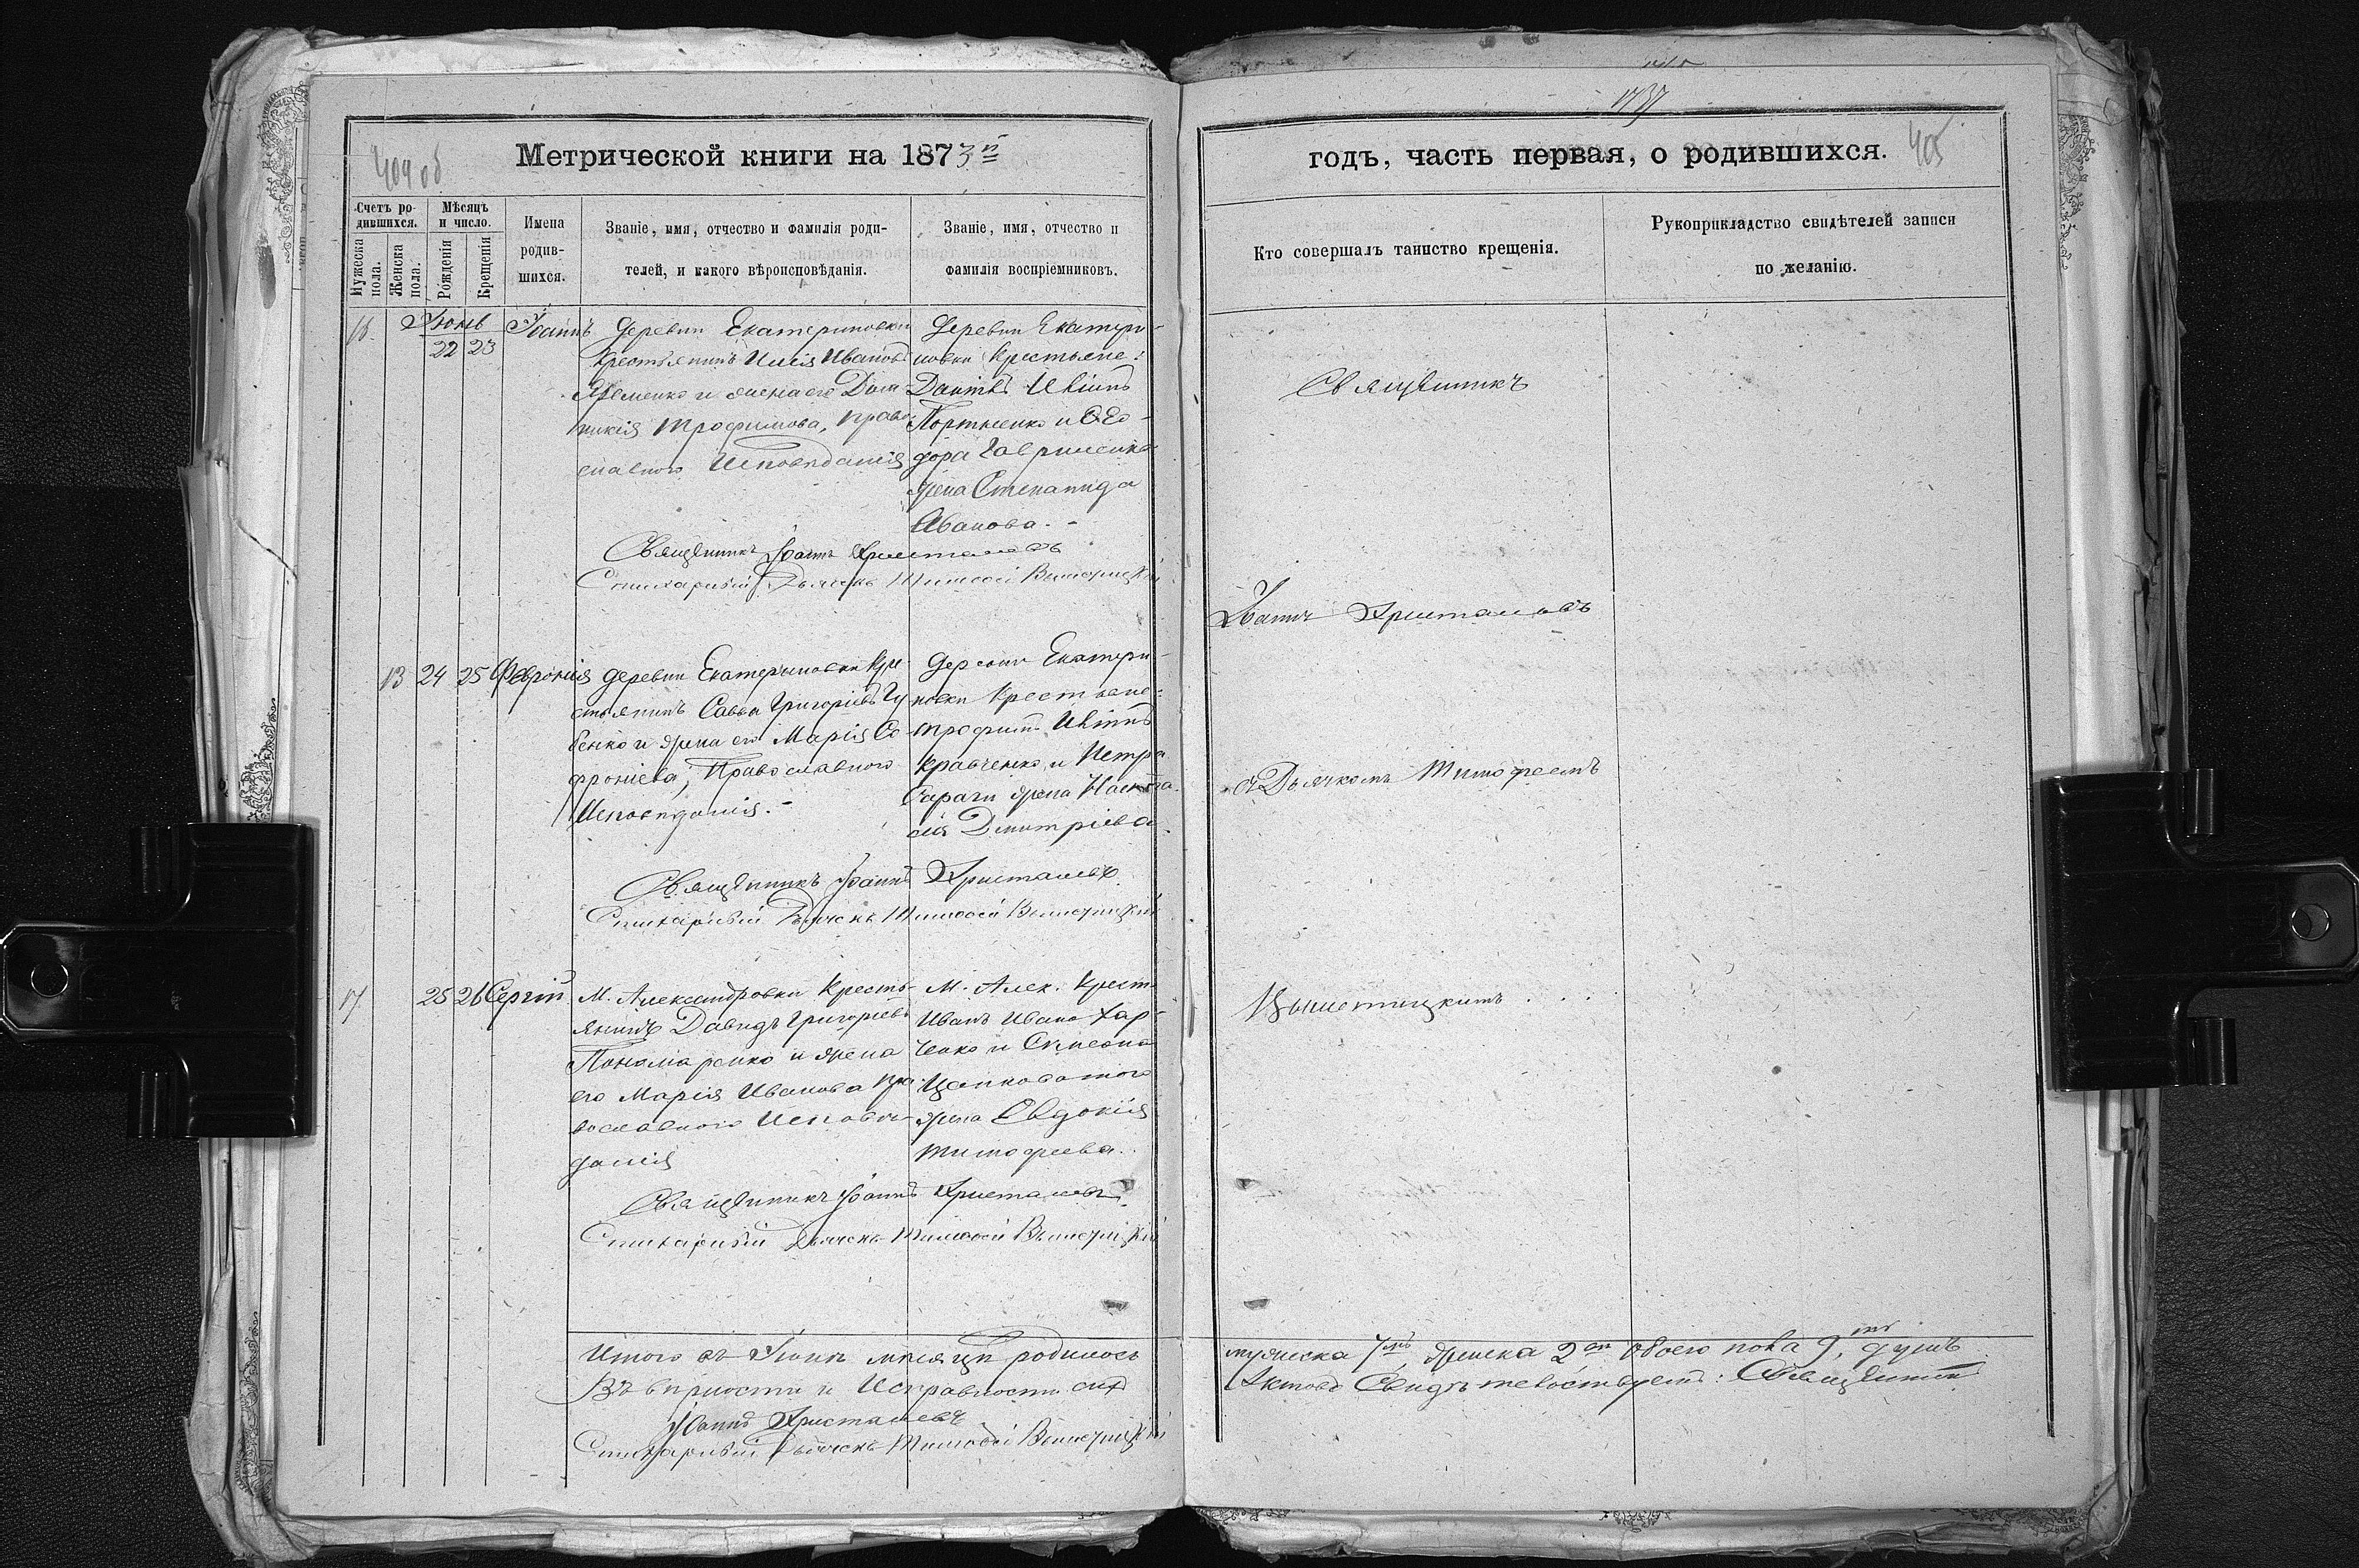 404 об
Метрической книги на 1873й
Счетъ ро-
дившихся.
Мѣсяцъ
и число.
Мужеска
пола.
Женска
пола.
Рожденія
Крещенія
Имена
родив-
шихся.
Званіе, имя, отчество и фамилія роди-
телей, и какого вѣроисповѣданія.
Званіе, имя, отчество и
фамилія воспріемниковъ.
16.
Іюнь
22 23
Іоаннъ
Деревни Екатериновки
Крестьянинъ Илія Ивановъ
Яременко и жена его Дом
никія Трофимова, Право
славного Исповѣданія
Деревни Екатери-
новки Крестьяне:
Даніилъ
Портненко и Ѳео-
дора Гавриленка
жена Степанида
Иванова. -
Священникъ Іоаннъ Христановъ
Стихарный Дьячекъ Тимоѳей
13 24 25
Февронія
Деревни Екатериновки Кре-
стьянинъ Савва Григоріевъ Гу
бенко и жена его Марія Со
фроніева, Православного
Исповѣданія. -
Деревни Екатери-
новки Крестьяне:
Трофимъ
Кравченко и Петра
жена Настаа
сія Дмитріева.
Священникъ Іоаннъ Христановъ
Стихарный Дьячекъ Тимоѳей
17 25 26
Сергій
М. Александровки Кресть-
янинъ Давидъ Григоріевъ
Пономаренко и жена
его Марія Иванова Пра
вославного Исповѣ-
данія
М. Алек. Крест.
Иванъ Ивано Хар-
ченко и Симеона
Цапковатого
жена Евдокія
Тимофеева.
Священникъ Іоаннъ Христановъ
Стихарный Дьячекъ Тимоѳей
Итого въ Іюнѣ мѣсяцѣ родилось
Въ вѣрности и Исправности сихъ
Іоаннъ Христановъ
Стихарный Дьячекъ Тимоѳей
405
годъ, часть первая, о родившихся.
Кто совершалъ таинство крещенія.
Рукоприкладство свидѣтелей записи
по желанію.
Священникъ
Іоаннъ Христановъ
съ Дьячкомъ Тимофеемъ
мужеска 7мь, женска 2ва обоего пола 9.ть душъ
Актовъ Свидѣтельствуемъ: Священникъ